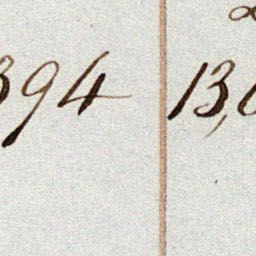 394 13,0